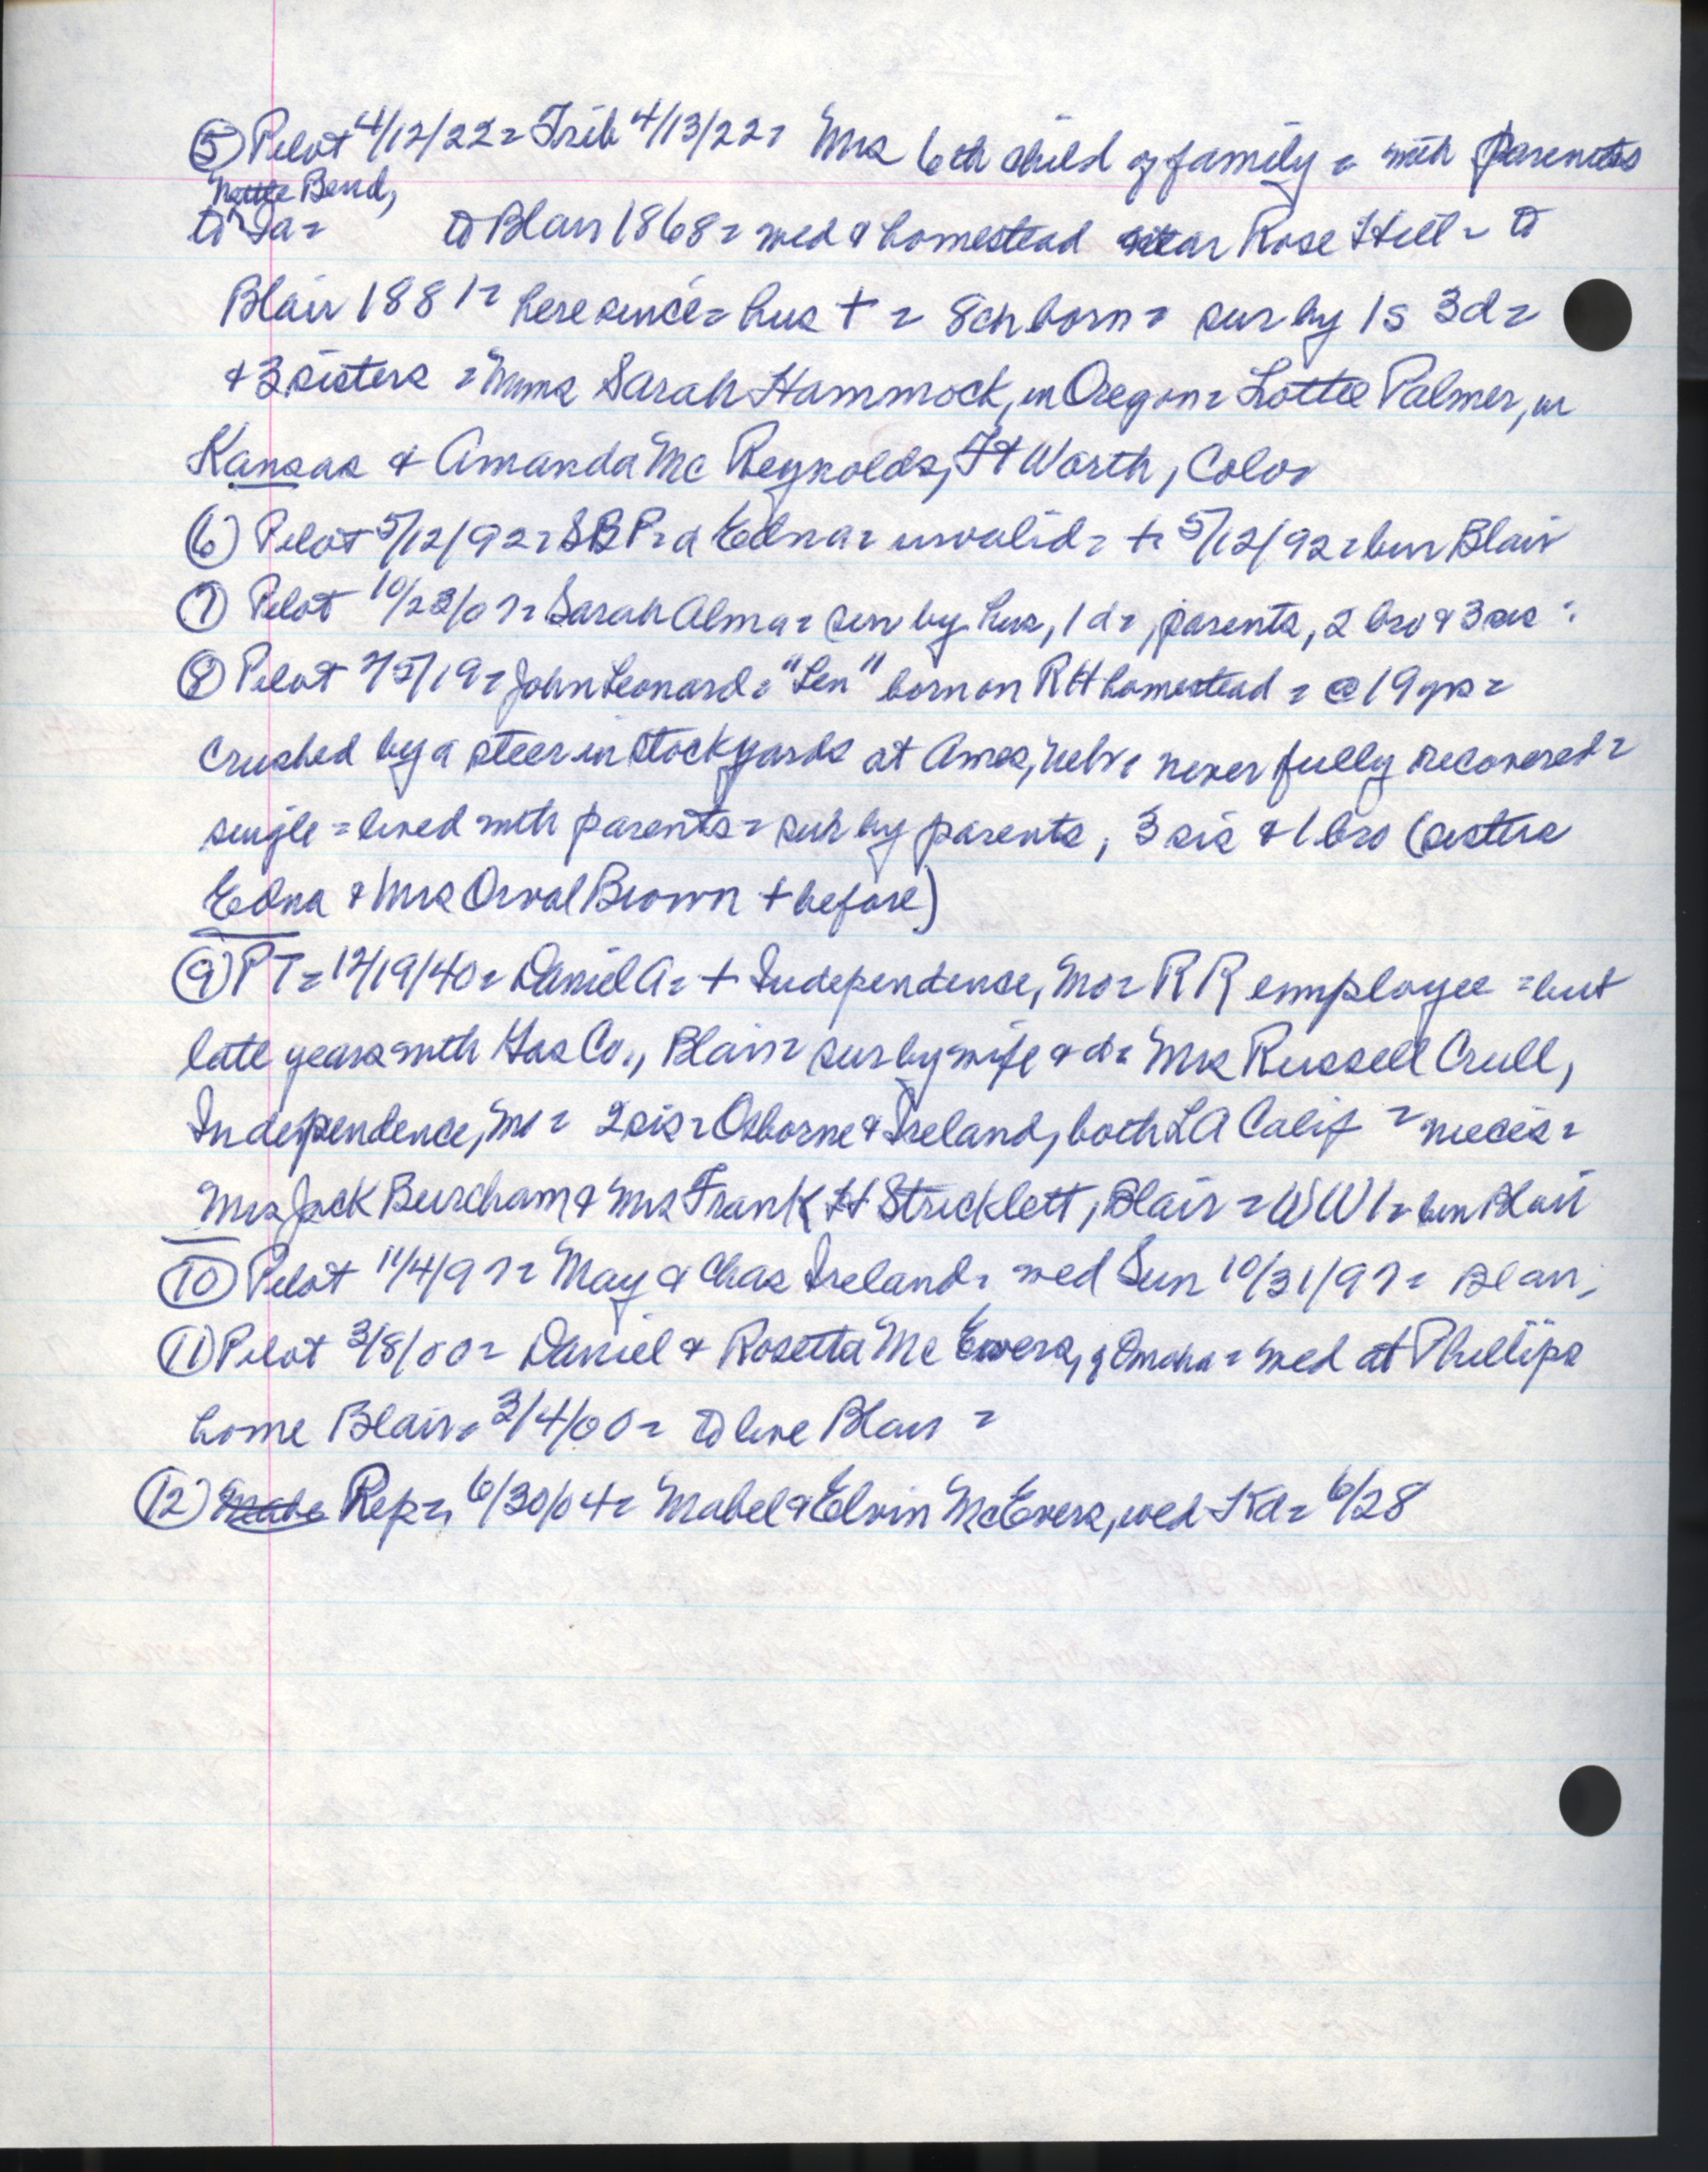 (5) Pilot 4/12/22 = Trib 4/13/22 = Mrs 6th child of family = with parents
Bend,
to Ia = to Blair 1868 = wed & homestead near Rose Hill = to
Blair 1881 = here since = hus + = 8 ch born = sur by 1s 3d =
& 3 sisters = Mmes Sarah Hammock, in Oregon = Lottie Palmer, in
Kansas & Amanda McReynolds, Ft Worth, Colo =
(6) Pilot 5/12/92 = SBP = d Edna = invalid = + = 5/12/92 = bur Blair
(7) Pilot 10/23/07 = Sarah Alma = sur by hus, 1 d =, parents, 2 bro & 3 sis =
(8) Pilot 19 = John Leonard = "Len" born on RH homestead = @ 19 yrs =
crushed by a steer in stockyards at Ames, Nebr = never fully recovered =
single = lived with parents = sur by parents, 3 sis & 1 bro (sisters
Edna & Mrs Orval Brown + before)
(9) PT = 12/19/40 = Daniel A = + Independence, Mo = RR employee = but
late years with Gas Co., Blair = sur by wife & d = Mrs Russell Crull,
Independence, Mo = 2 sis = Osborne & Ireland, both LA Calif = nieces =
Mrs Jack Burcham & Mrs Frank H Stricklett, Blair = WW1 = bur Blair
(10) Pilot 11/4/97 = May & Chas Ireland = wed Sun 10/31/97 = Blair,
(11) Pilot 3/8/00 = Daniel & Rosetta McEwers, of Omaha = wed at Phillips
home Blair = 3/4/00 = to live Blair =
(12) Rep = 6/30/04 = Mabel & Elvin McEvers, wed Kd = 6/28